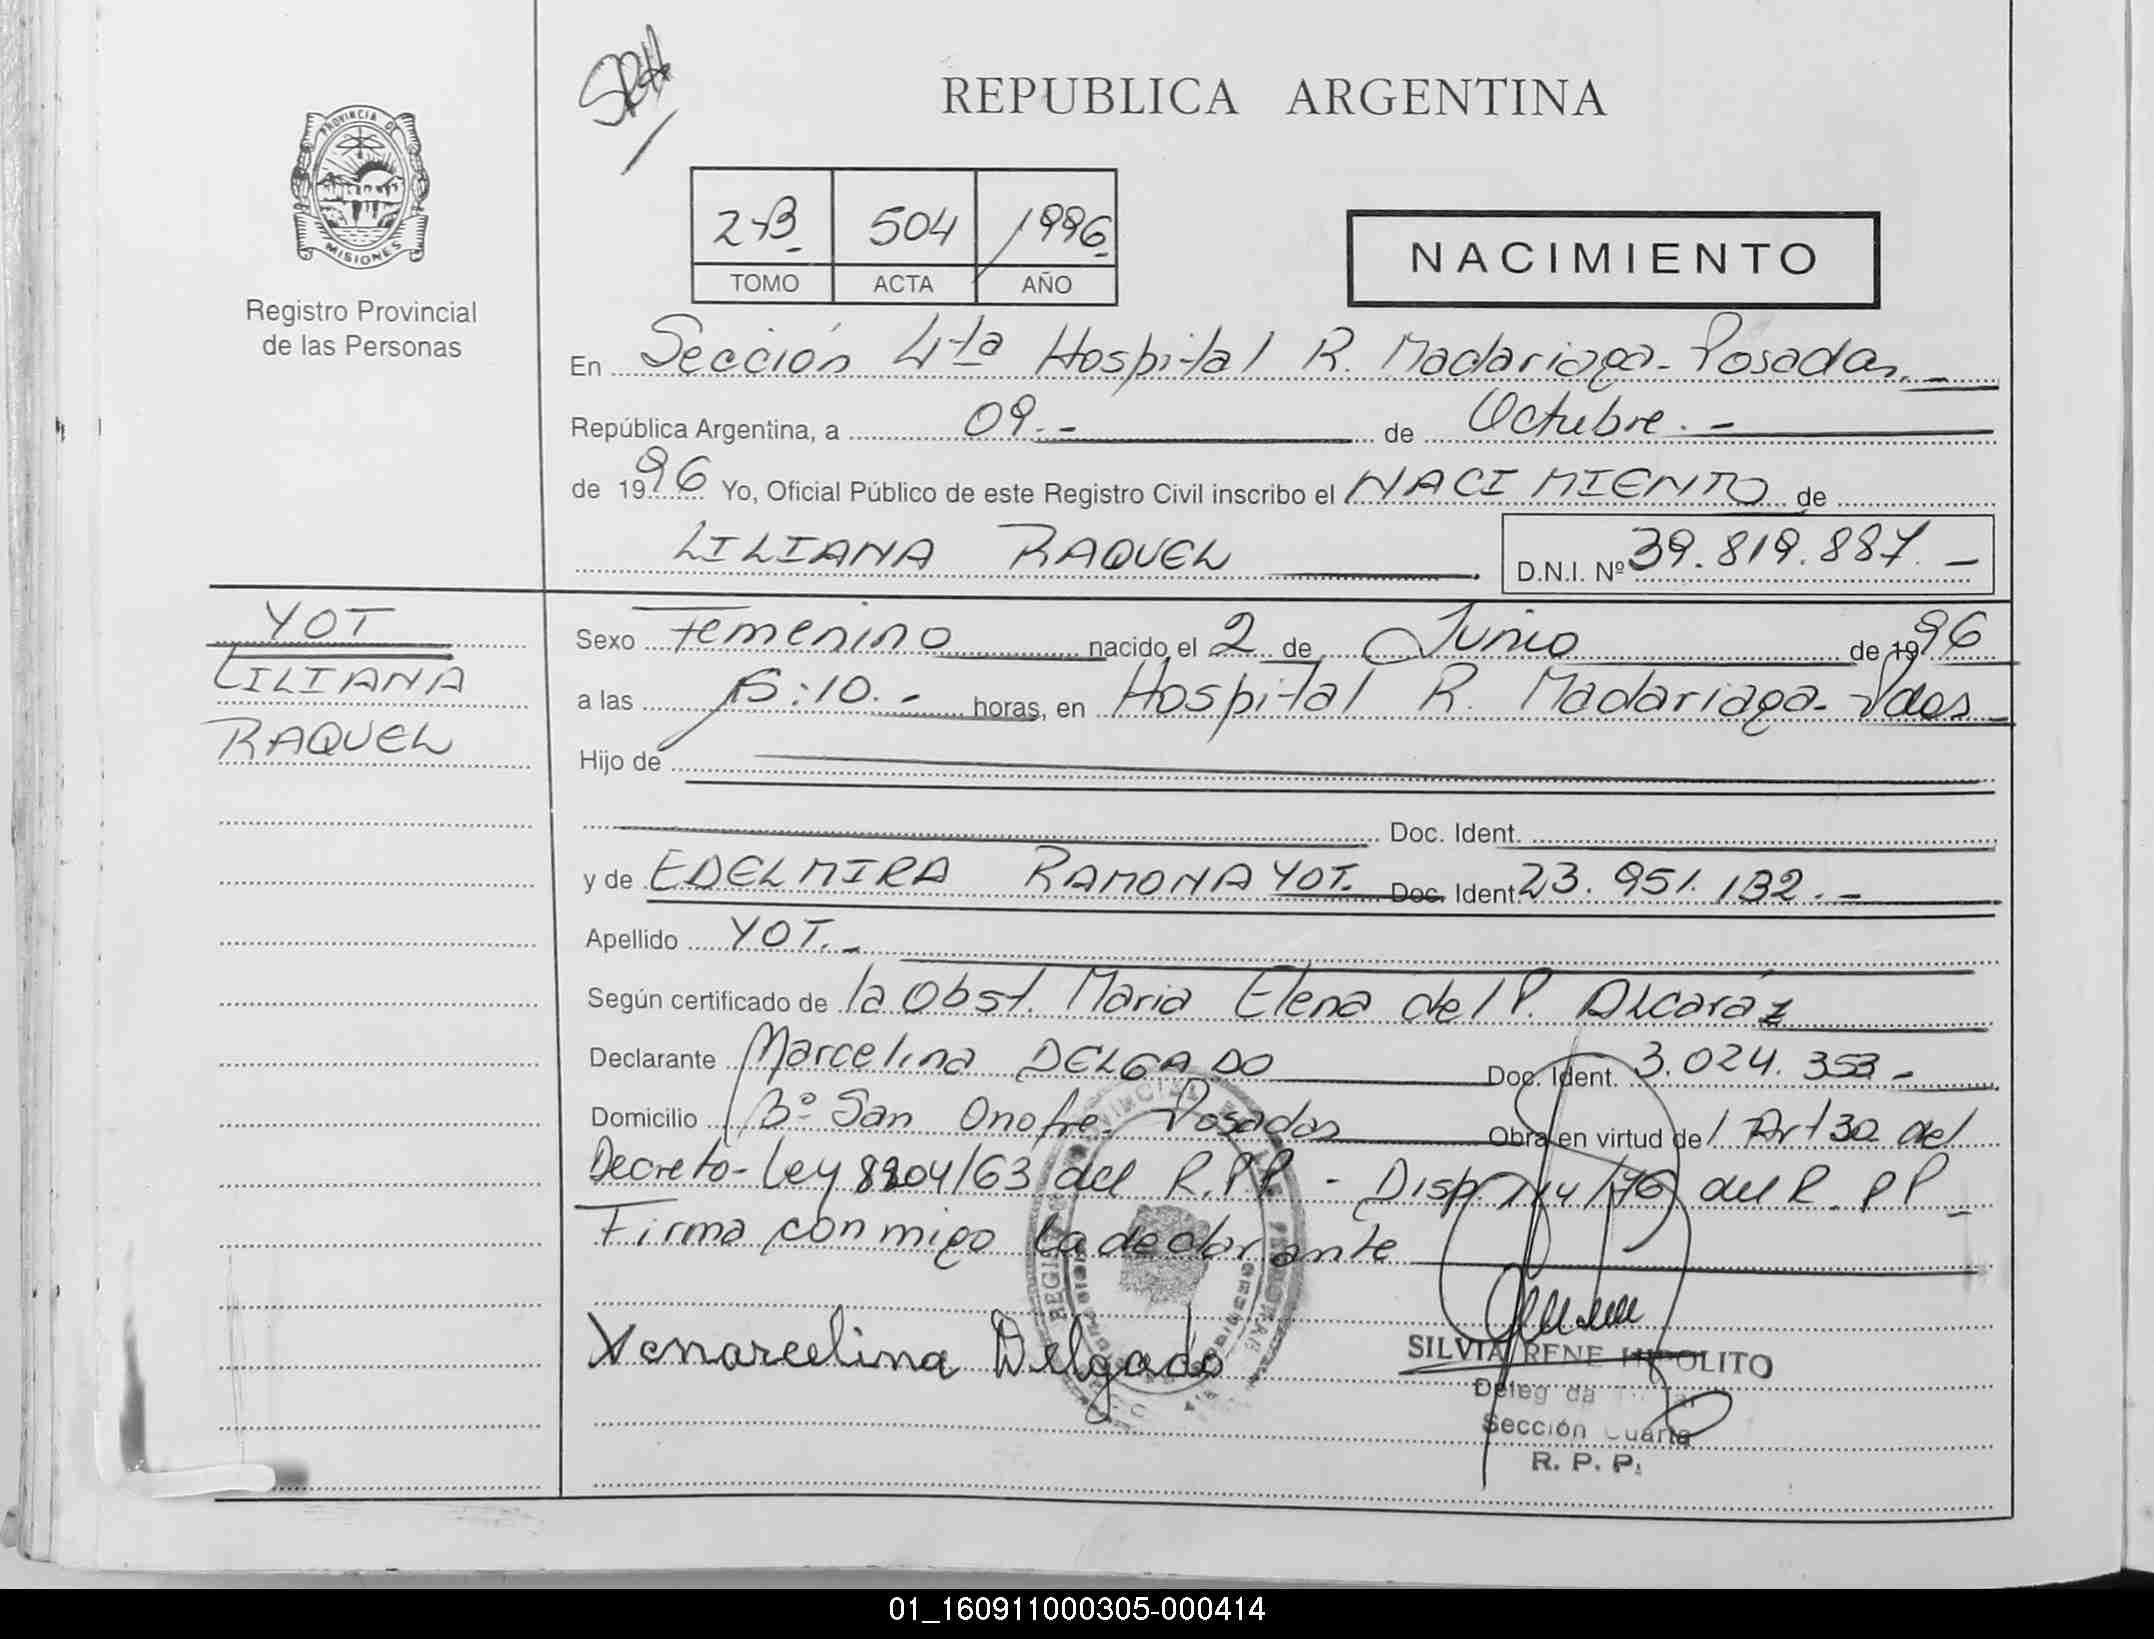 SRH
REPUBLICA ARGENTINA
PROVINCIA DE
MISIONES
Registro Provincial
de las Personas
2-B 504 1996
TOMO ACTA AÑO
NACIMIENTO
En Sección 4ta Hospital R. Madariaga - Posadas.-
República Argentina, a 09.- de Octubre.-
de 1996 Yo, Oficial Público de este Registro Civil inscribo el NACIMIENTO de
LILIANA RAQUEL
D.N.I. Nº 39.819.887.-
YOT
LILIANA
RAQUEL
Sexo Femenino nacido el 2 de Junio de 1996
a las 15:10.- horas, en Hospital R. Madariaga - Pdas
Hijo de
Doc. Ident.
y de EDELMIRA RAMONA YOT. Doc. Ident. 23.951.132.-
Apellido YOT.-
Según certificado de la Obst. Maria Elena del P. Alcaráz
Declarante Marcelina DELGADO Doc. Ident. 3.024.353-
Domicilio Bº San Onofre. Posadas Obra en virtud del Art 30 del
Decreto-Ley 8204/63 del R.P.P. - Disp. 114/76 del R.P.P.
Firma conmigo la declarante
Marcelina Delgado
SILVIA RENE HIPOLITO
Sección Cuarta
R. P. P.
01_160911000305-000414